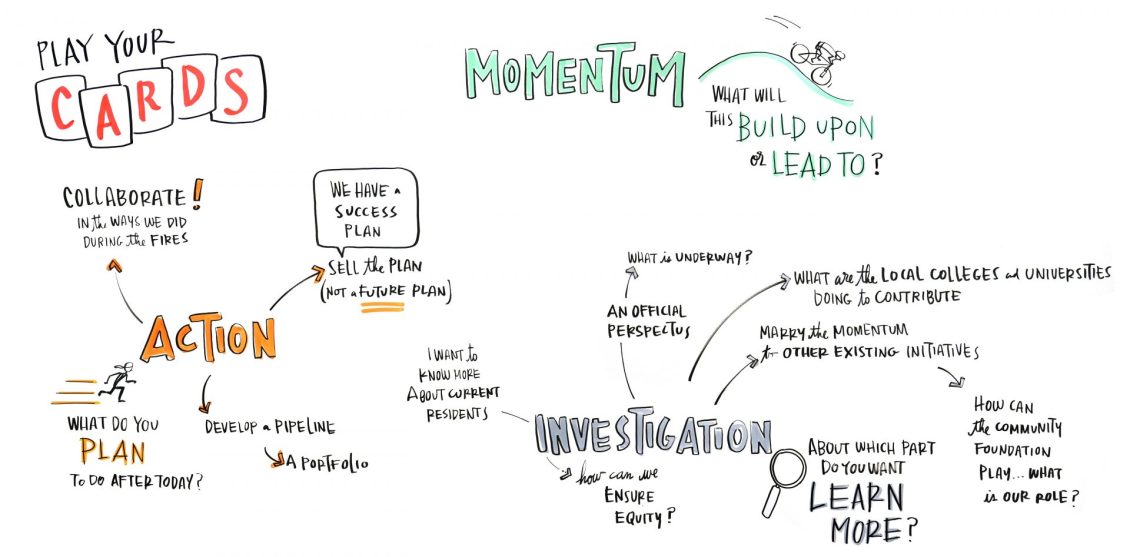 PLAY YOUR
CARDS
MOMENTUM
WHAT WILL
THIS BUILD UPON
or LEAD TO?
COLLABORATE!
IN the WAYS WE DID
DURING the FIRES
WE HAVE a
SUCCESS
PLAN
SELL the PLAN
(NOT a FUTURE PLAN)
ACTION
WHAT DO YOU
PLAN
TO DO AFTER TODAY?
DEVELOP a PIPELINE
A PORTFOLIO
WHAT is UNDERWAY?
AN OFFICIAL
PERSPECTUS
WHAT are the LOCAL COLLEGES and UNIVERSITIES
DOING to CONTRIBUTE
MARRY the MOMENTUM
to OTHER EXISTING INITIATIVES
I WANT to
KNOW MORE
ABOUT CURRENT
RESIDENTS
INVESTIGATION
how can we
ENSURE
EQUITY?
ABOUT WHICH PART
DO YOU WANT
LEARN
MORE?
HOW CAN
the COMMUNITY
FOUNDATION
PLAY... WHAT
is OUR ROLE?